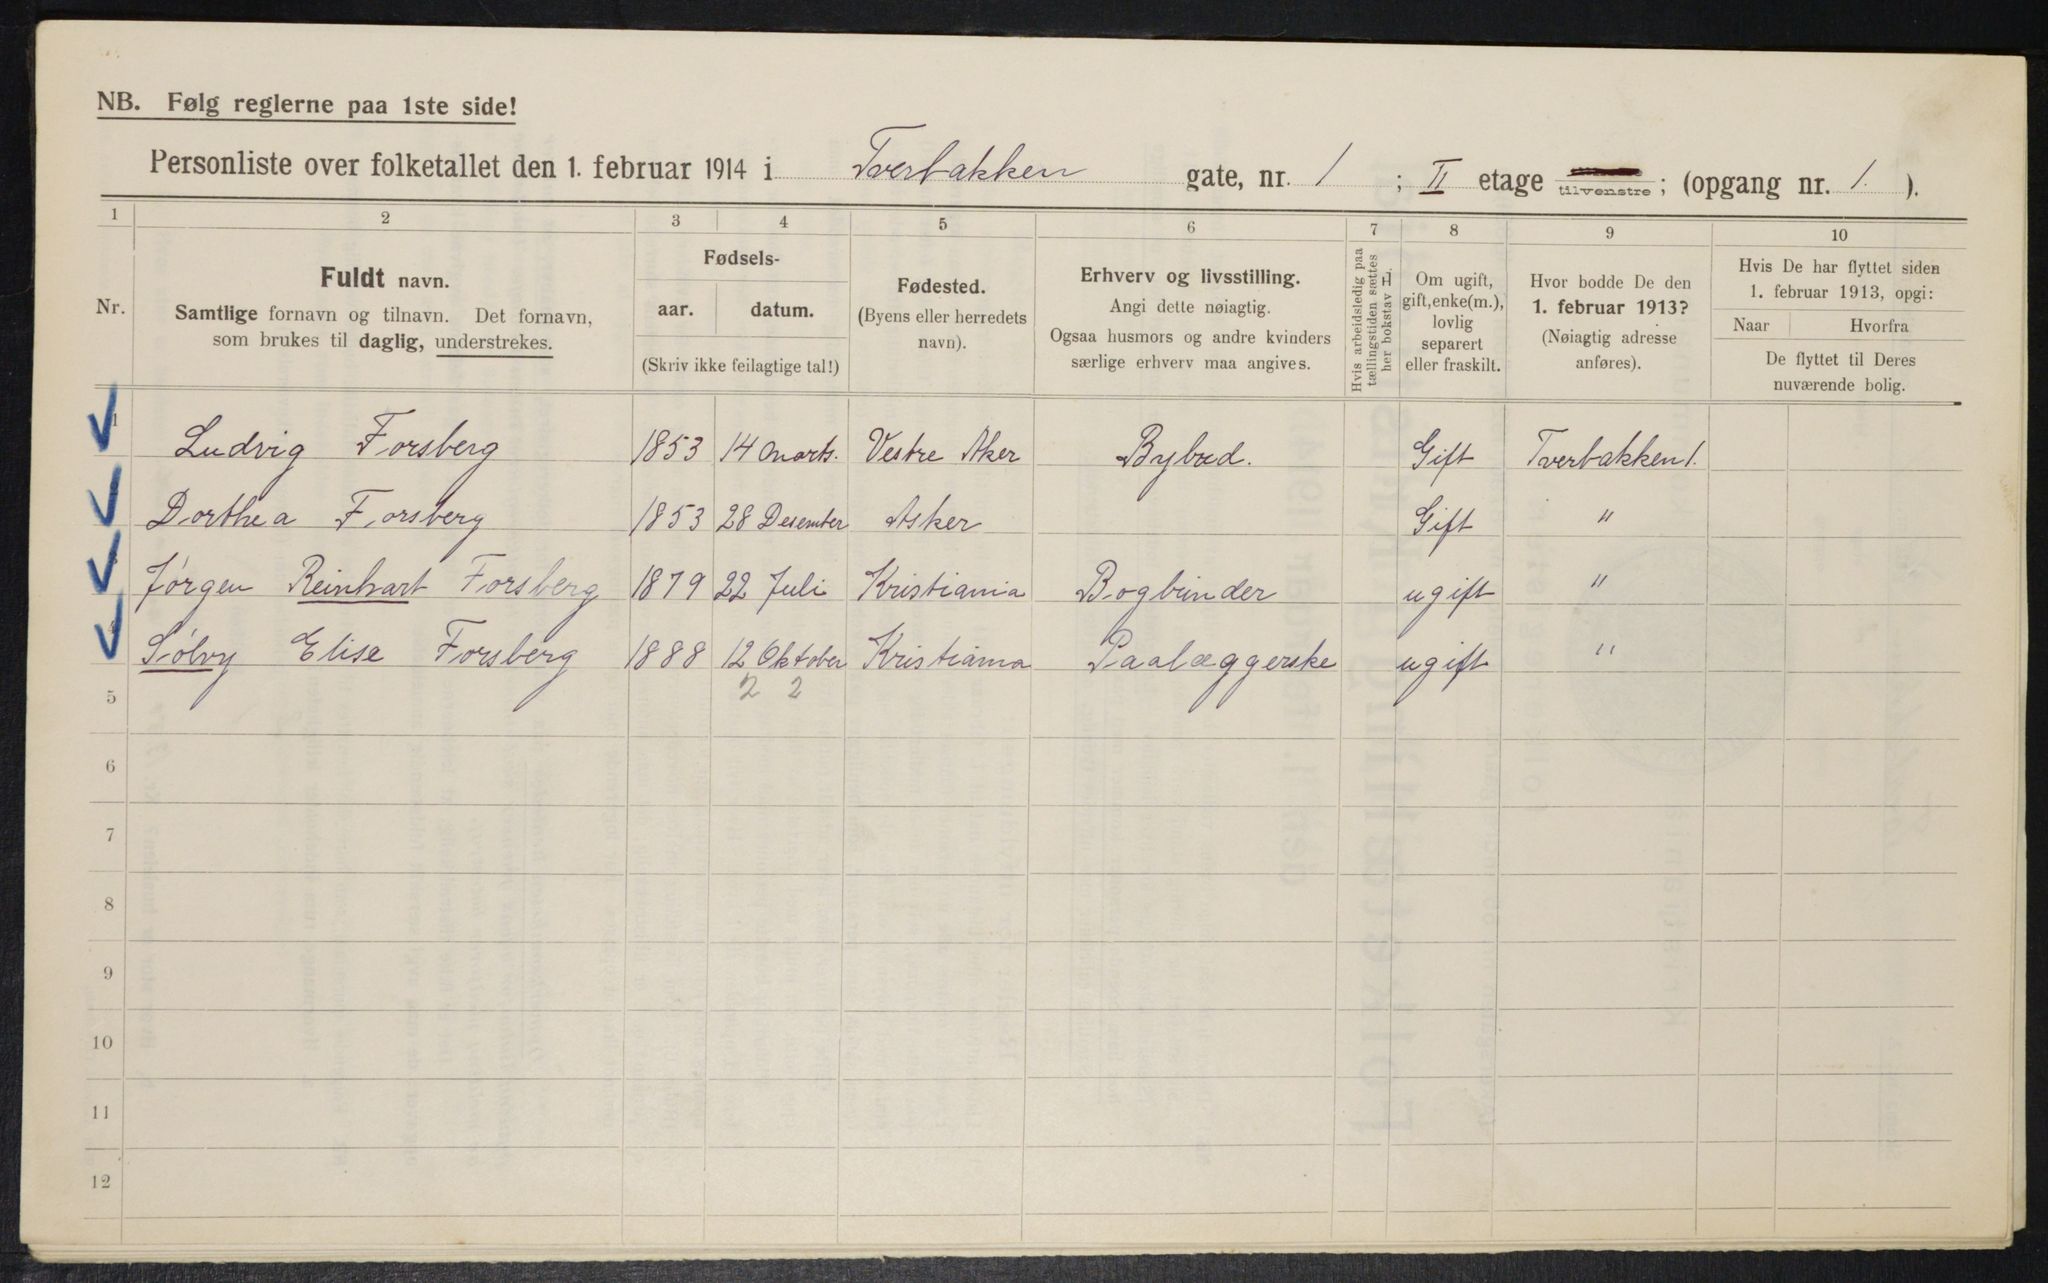 NB. Følg reglerne paa 1ste side!
Personliste over folketallet den 1. februar 1914 i Tverbakken gate, nr. 1 ; II etage tilvenstre ; (opgang nr. 1. ).
1 2 3 4 5 6 7 8 9 10
Nr.
Fuldt navn.
Samtlige fornavn og tilnavn. Det fornavn,
som brukes til daglig, understrekes.
Fødsels-
aar. datum.
(Skriv ikke feilagtige tal!)
Fødested.
(Byens eller herredets
navn).
Erhverv og livsstilling.
Angi dette nøiagtig.
Ogsaa husmors og andre kvinders
særlige erhverv maa angives.
Hvis arbeidsledig paa
tællingstiden sættes
her bokstav L.
Om ugift,
gift, enke(m.),
lovlig
separert
eller fraskilt.
Hvor bodde De den
1. februar 1913?
(Nøiagtig adresse
anføres).
Hvis De har flyttet siden
1. februar 1913, opgi:
Naar Hvorfra
De flyttet til Deres
nuværende bolig.
1 Ludvig Forsberg 1853 14 Marts. Vestre Aker Bybud. Gift Tverbakken 1.
Dorthea Forsberg 1853 28 Desember Asker Gift "
Jørgen Reinhart Forsberg 1879 22 Juli Kristiania Bogbinder ugift "
4 Sølvy Elise Forsberg 1888 12 Oktober Kristiania Paalæggerske ugift "
2 2
5
6
7
8
9
10
11
12